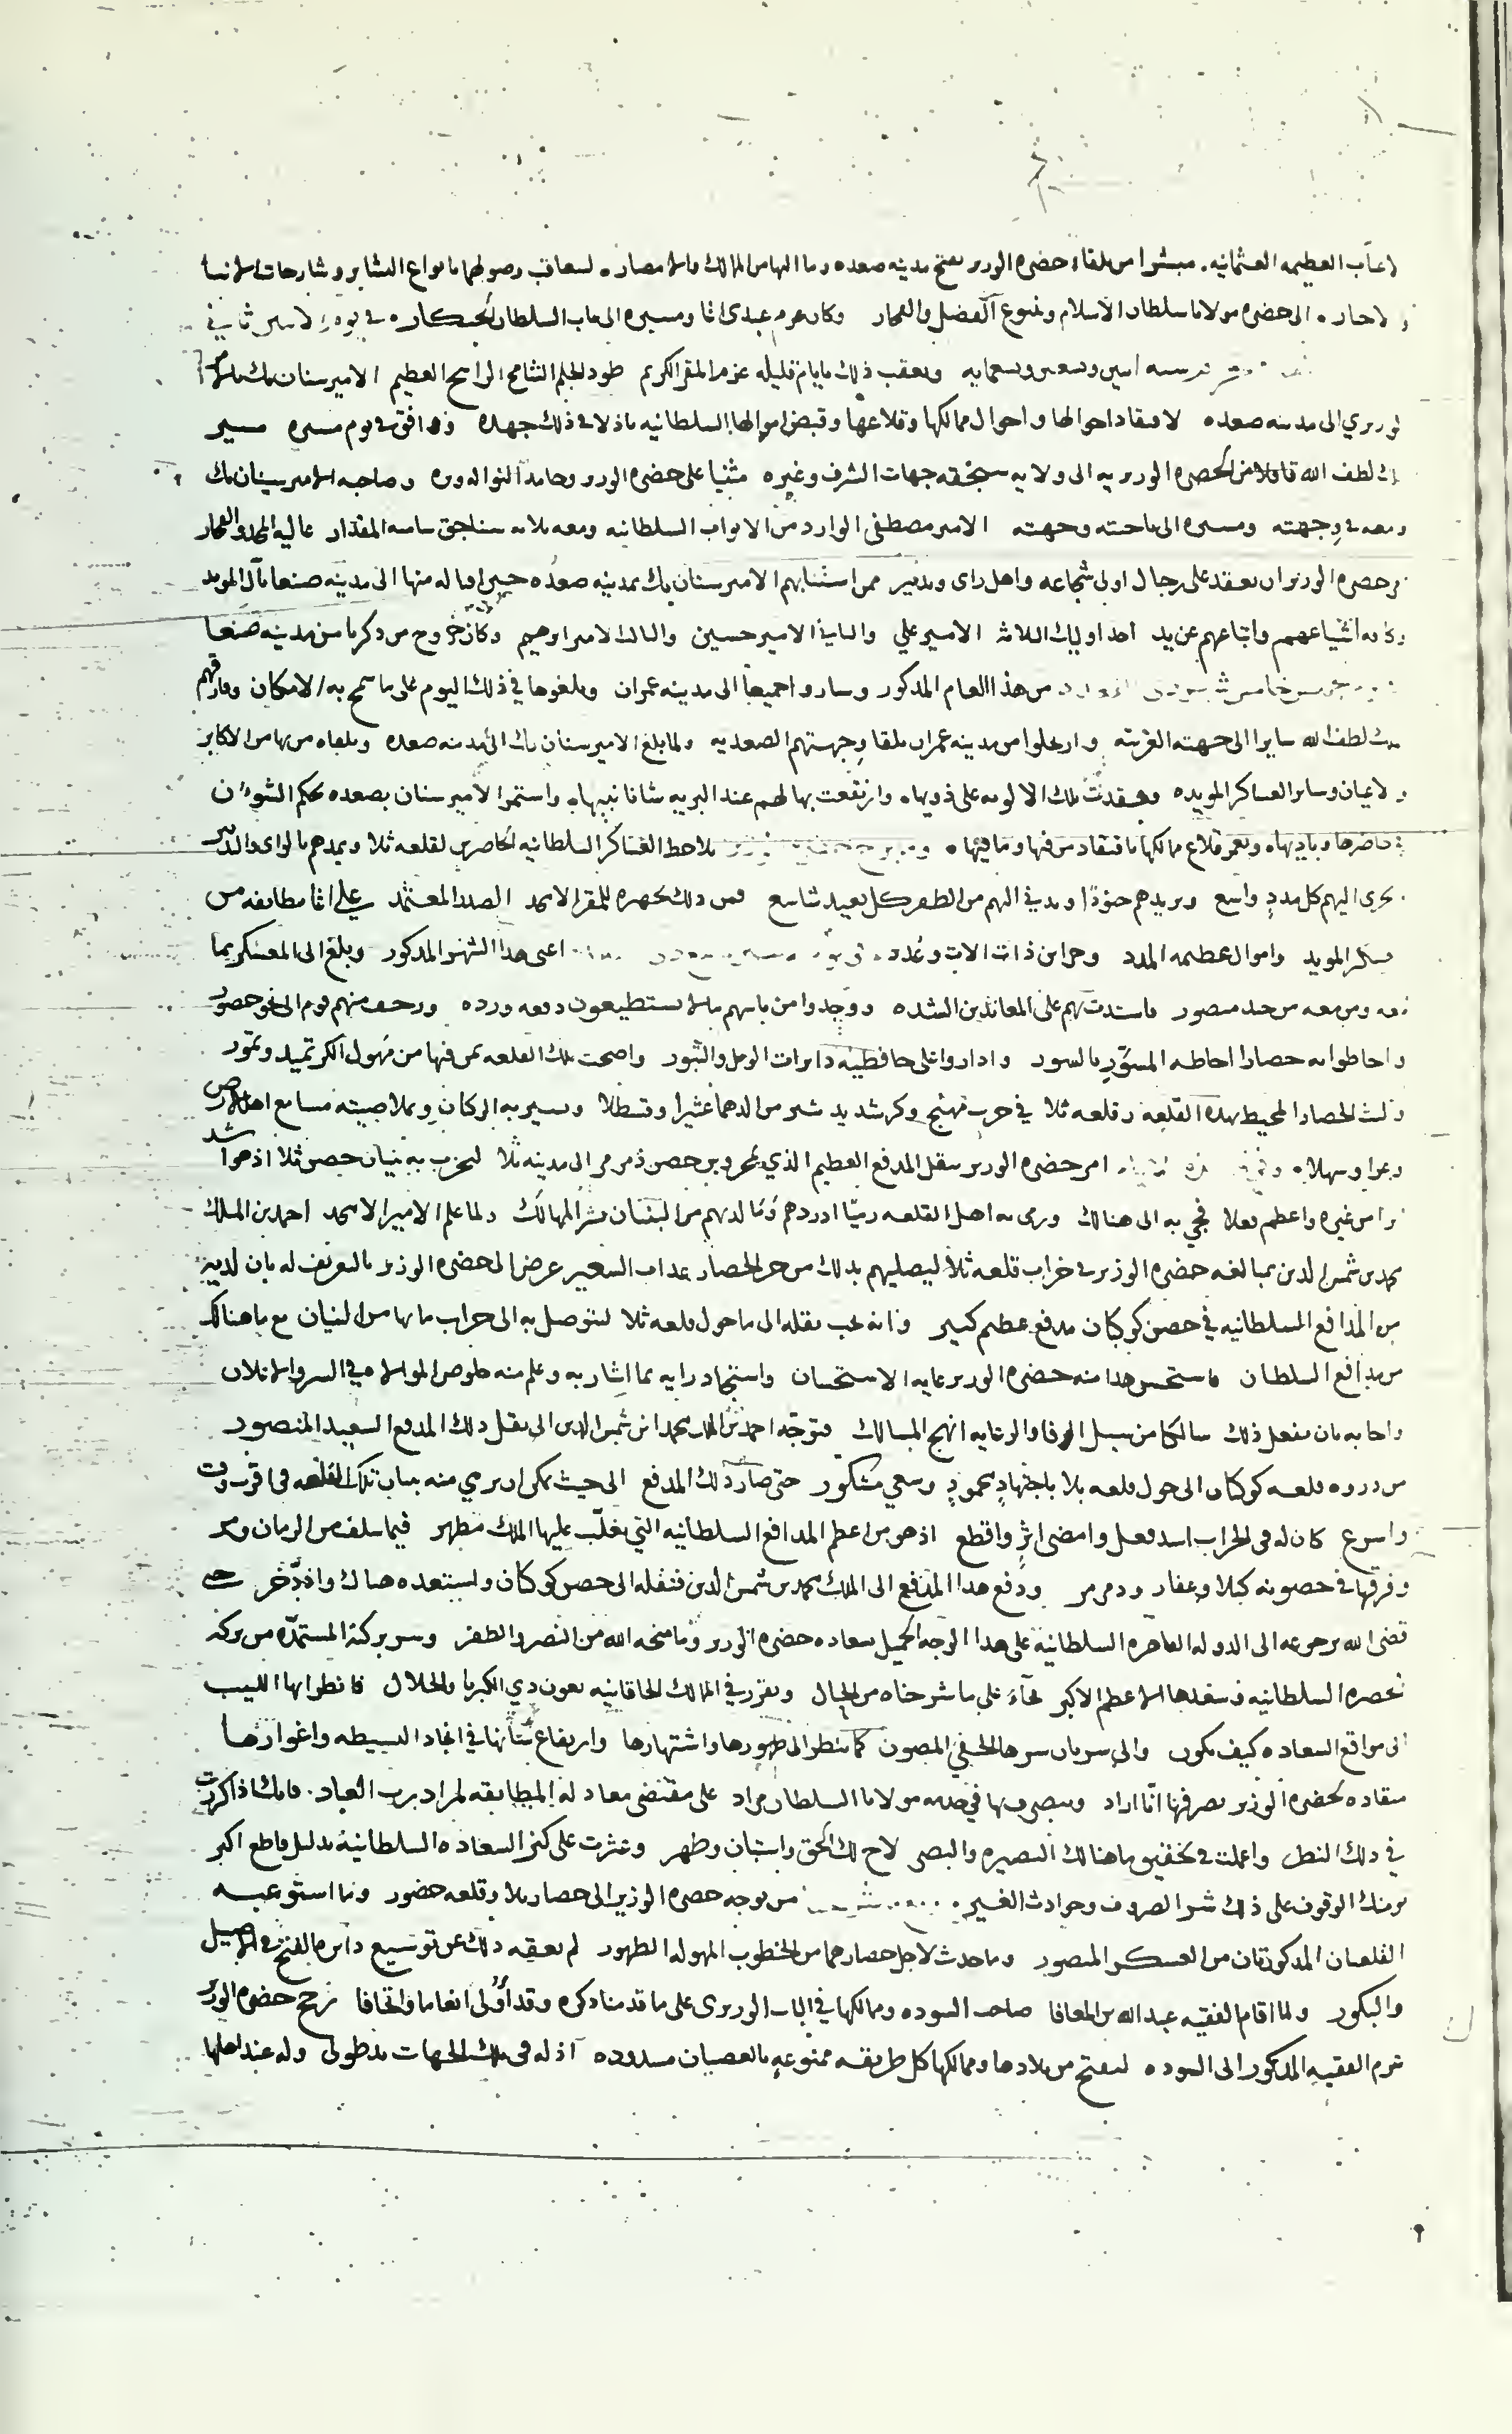 الاعتاب العظيمه العثمانيه . مبشرا من تلقاء حضره الوزير بفتح مدينه صعده وما اليها من الممالك والامصار
الى حضره مولانا سلطان الاسلام وينبوع الفضل والفخار وكان عزم عبدي اغا ومسيره الى باب السلطان
وتسعين وتسعمايه وبعقب ذلك بايام قليله عزم المقر الكريم طود الحلم الشامخ الراسخ العظيم الامير سنان بك
الى مدينه صعده لافتقاد احوالها واحوال ممالكها وقلاعها وقبض اموالها السلطانيه باذلا في ذلك جهده ووافق في يوم مسيره مسير
لطف الله قافلا من الحضره الوزيريه الى ولايه سنجقه جهات الشرف وغيره مثنيا على حضره الوزير وحامدا وصاحبه الامير سنان بك
ومعه في وجهته ومسيره الى ناحيته وجهته الامير مصطفى الوارد من الابواب السلطانيه ومعه ثلاثه سناجق ساميه المقدار عاليه المجد والفخار
حضره الوزير ان يعقد على رجال اولى شجاعه واهل راي وتدبير ممن استنابهم الامير سنان بك بمدينه صعده حين اقباله منها الى مدينه صنعا
اشياعهم واتباعهم عن يد احد اوليك الثلاثه الامير علي والثاني الامير حسين والثالث الامير ابرهيم وكان خروج من ذكرنا من مدينه صنعا
من هذا العام المذكور وساروا جميعا الى مدينه عمران وبلغوها في ذلك اليوم على ما سمح به الامكان وفارقهم
لطف الله سايرا الى جهته الغربيه وارتحلوا من مدينه عمران تلقا وجهتهم الصعديه ولما بلغ الامير سنان بك الى مدينه صعده وتلقاه من بها من الاكابر
والاعيان وساير العساكر المويده وعقدت تلك الالويه على ذويها وارتفعت بها لهم عند البريه شانا نبيها واستمر الامير سنان بصعده محكم الشؤن
في حاضرها وباديها ويعمر قلاع ممالكها بافتقاد من فيها وما فيها بلاحظ العساكر السلطانيه المحاصرين لقلعه ثلا ويمدهم بالراي والتدبير
يجري اليهم كل مدد واسع ويزيدهم جنودا ويدني اليهم من الظفر كل بعيد شاسع فمن ذلك تجهيزه للمقر الامجد الصدر المعتمد علي اغا بطايفه من
العسكر المويد واموال عظيمه المدد وخزاين ذات الات وعدد اعنى هذا الشهر المذكور وبلغ الى المعسكر بما
معه ومن معه من جند منصور فاشتدت بهم على المعاندين الشده ووجدوا من باسهم ما لا يستطيعون دفعه ورده وزحف منهم قوم الى نحو حضور
واحاطوا به حصارا احاطه المسور بالسور واداروا على حافظيه دايرات الويل والثبور واضحت تلك القلعه بمن فيها من هول الكر تميد وتمور
ولبث الحصار المحيط بهذه القلعه وقلعه ثلا في حرب مهيج وكر شديد يثير من الدهما عثيرا وقسطلا ويسير به الركبان ويملا صيته مسامع اهل الارض
وعرا وسهلا امر حضره الوزير بنقل المدفع العظيم الذي بمحروس حصن ذمرمر الى مدينه ثلا ليخرب به بنيان حصن ثلا اذ هو اشد
من غيره واعظم فعلا فجي به الى هنالك ورمى به اهل القلعه رميا اوردهم وما لديهم من البنيان شر المهالك ولما علم الامير الامجد احمد بن الملك
محمد بن شمس الدين بمبالغه حضره الوزير في خراب قلعه ثلا ليصليهم بذلك من حر الحصار عذاب السعير عرض الى حضره الوزير بالتعريف له بان لديه
من المدافع السلطانيه في حصن كوكبان مدفع عظيم كبير وانه يحب نقله الى ما حول قلعه ثلا ليتوصل به الى خراب ما بها من البنيان مع ما هنالك
من مدافع السلطان فاستحسن هذا منه حضره الوزير غايه الاستحسان واستجاد رايه بما اشار به وعلم منه خلوص الموالاه في السر والاعلان
واجابه بان يفعل ذلك سالكا من سبيل الوفا والرعايه انهج المسالك فتوجه احمد بن الملك محمد ابن شمس الدين الى نقل ذلك المدفع السعيد المنصور
من ذروه قلعه كوكبان الى حول قلعه ثلا باجتهاد محمود وسعي مشكور حتى صار ذلك المدفع الى حيث يمكن ان يرمي منه بنيان تلك القلعه في اقرب وقت
واسرع كان له في الخراب اسد فعل وامضى اثر واقطع اذ هو من اعظم المدافع السلطانيه التي تغلب عليها الملك مطهر فيما سلف من الزمان ومر
وفرقها في حصونه كثلا وعفار وذمرمر ودفع هذا المدفع الى الملك محمد بن شمس الدين فنقله الى حصن كوكبان واستعده هناك وادخر حتى
قضى الله برجوعه الى الدوله القاهره السلطانيه على هذا الوجه الجميل بسعاده حضره الوزير وما منحه الله من النصر والظفر وسر بركته المستمده من بركه
الحضره السلطانيه على ما شرحناه من الحال وتقرر في الممالك الخاقانيه بعون ذي الكبريا والجلال فانظر ايها اللبيب
الى مواقع السعاده كيف تكون والى سريان سرها الخفي المصون كما تنظر الى ظهورها واشتهارها وارتفاع شانها في انجاد البسيطه واغوارها
منقاده لحضره الوزير يصرفها انا اراد في خدمه مولانا السلطان مراد على مقتضى معادله المطابقه لمراد رب العباد . فانك اذا كررت
في ذلك النظر واعملت في تحقيق ما هنالك البصيره والبصر لاح لك الحق واستبان وظهر وعثرت على كنز السعاده السلطانيه بدليل قاطع اكبر
يومنك الوقوف على ذلك شر الصروف وحوادث الغير من توجه حضره الوزير الى حصار ثلا وقلعه حضور وما استوعبه
القلعتان المذكورتان من العسكر المنصور وما حدث لاجل حصارهما من الخطوب المهوله الظهور لم يعقه ذلك عن توسيع دايره الفتح في الاصيل
والبكور ولما اقام الفقيه عبد الله بن المعافا صاحب السوده وممالكها في الباب الوزيري على ما قدمنا ذكره وقد اولى انعاما واتحافا رجح حضره الوزير
عزم الفقيه المذكور الى السوده ليفتح من بلادها وممالكها كل طريقه ممنوعه بالعصيان مسدوده اذ له في تلك الجهات يد طولى وله عند اهلها